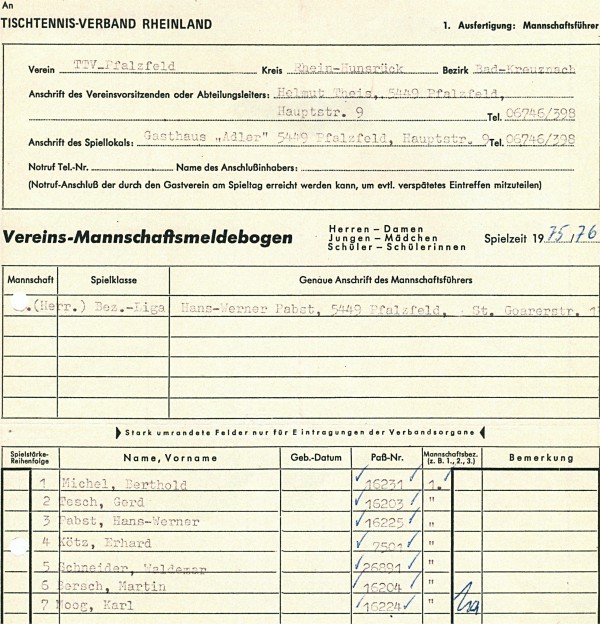 An
TISCHTENNIS-VERBAND RHEINLAND
1. Ausfertigung: Mannschaftsführer
Verein TTV Pfalzfeld Kreis Rhein-Hunsrück Bezirk Bad-Kreuznach
Anschrift des Vereinsvorsitzenden oder Abteilungsleiters: Helmut Theis, 5449 Pfalzfeld,
Hauptstr. 9 Tel. 06746/398
Anschrift des Spiellokals: Gasthaus „Adler" 5449 Pfalzfeld, Hauptstr. 9 Tel. 06746/398
Notruf Tel.-Nr. Name des Anschlußinhabers:
(Notruf-Anschluß der durch den Gastverein am Spieltag erreicht werden kann, um evtl. verspätetes Eintreffen mitzuteilen)
Vereins-Mannschaftsmeldebogen
Herren – Damen
Jungen – Mädchen
Schüler – Schülerinnen
Spielzeit 19 75 / 76
Mannschaft Spielklasse Genaue Anschrift des Mannschaftsführers
.(Herr.) Bez.-Liga Hans-Werner Pabst, 5449 Pfalzfeld, St. Goarerstr.
Stark umrandete Felder nur für Eintragungen der Verbandsorgane
Spielstärke-Reihenfolge Name, Vorname Geb.-Datum Paß-Nr. Mannschaftsbez. (z. B. 1., 2., 3.) Bemerkung
1 Michel, Berthold 16231 1.
2 Pesch, Gerd 16203 "
3 Pabst, Hans-Werner 16225 "
4 Kötz, Erhard 7501 "
5 Schneider, Waldemar 26891 "
6 Bersch, Martin 16204 "
7 Moog, Karl 16224 "